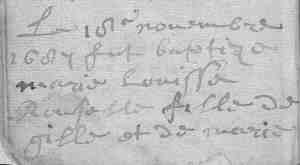 Le 18e novembre
1687 fut baptize
marie Louisse
fille de
gille et de marie